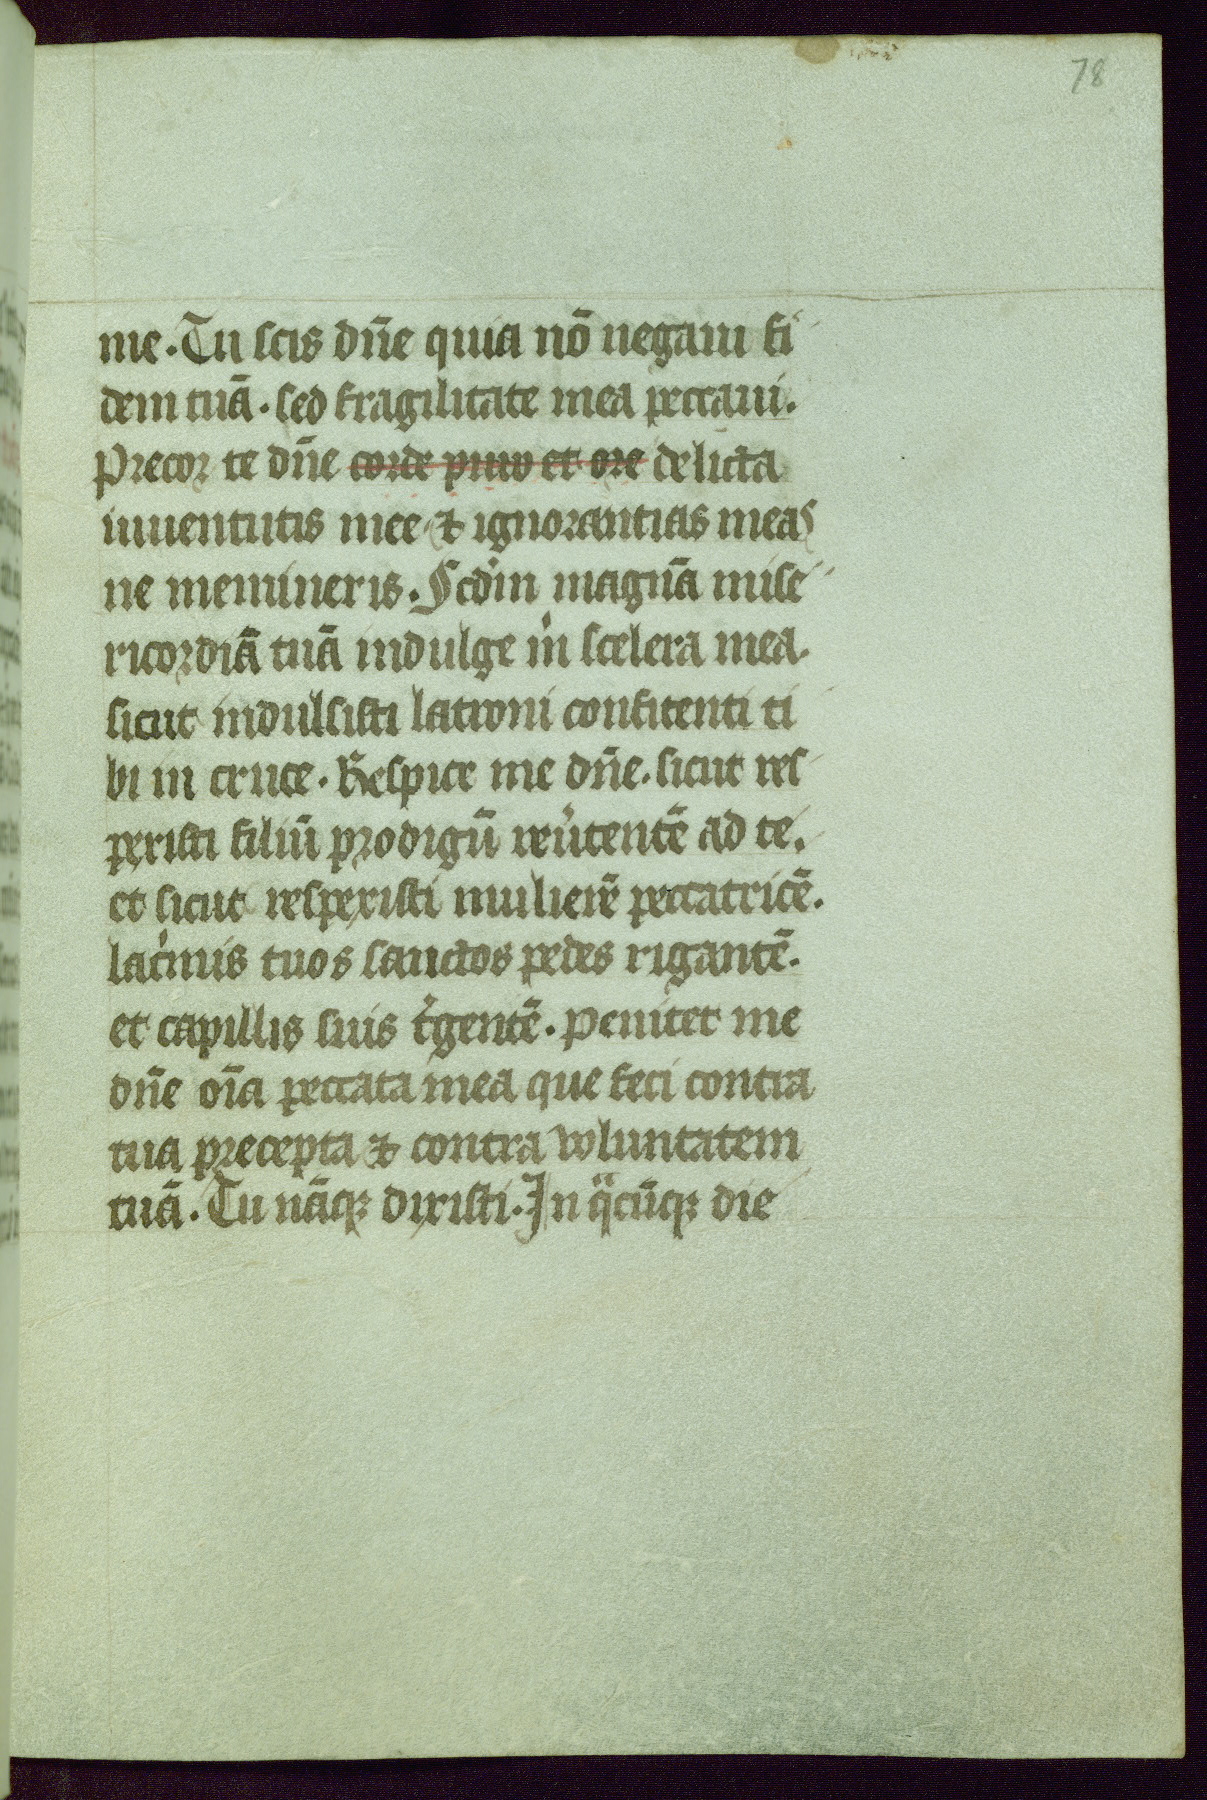 78
me. Tu scis dn̄e quia nō negaui fi
dem tuā. sed fragilitate mea peccaui.
Precor te dn̄e corde puro et ore delicta
iuuentutis mee & ignorantias meas
ne memineris. Scdm̄ magnā mise
ricordiā tuā indulge m̍ scelera mea.
sicut indulsisti latroni confitenti ti
bi in cruce. Respice me dn̄e. sicut res
pexisti filiū prodigū reu̍tentē ad te.
et sicut respexisti mulierē peccatricē.
lac̍mis tuos sanctos pedes rigantē.
et capillis suis t̍gentē. Penitet me
dn̄e oīa peccata mea que feci contra
tua precepta & contra voluntatem
tuā. Tu nāqꝫ dixisti. In qͣcūqꝫ die